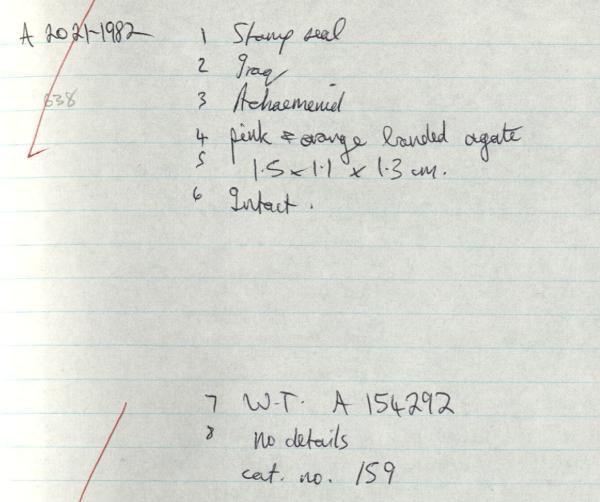 A 2021-1982 1 Stamp seal
2 Iraq
638 3 Achaemenid
4 pink & orange banded agate
5 1.5 x 1.1 x 1.3 cm.
6 Intact.
7 W.T. A 154292
8 no details
cat. no. 159